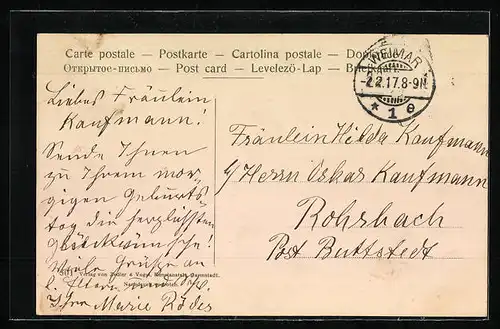 Carte postale — Postkarte — Cartolina postale — Dopisnice
Открытое-письмо — Post card — Levelező-Lap — Briefkaart
WEIMAR
-2.2.17.8-9N
* 1 e
Liebes Fräulein
Kaufmann!
Sende Ihnen
zu Ihrem mor-
gigen Geburts-
tag die herzlichsten
Glückwünsche!
Viele Grüße an
l. Eltern und
Ihre Marie Rödes
Fräulein Hilda Kaufmann
Herrn Oskar Kaufmann
Rohrbach
Post Buttstedt
Verlag von Zedler & Vogel, Kunstanstalt, Darmstadt.